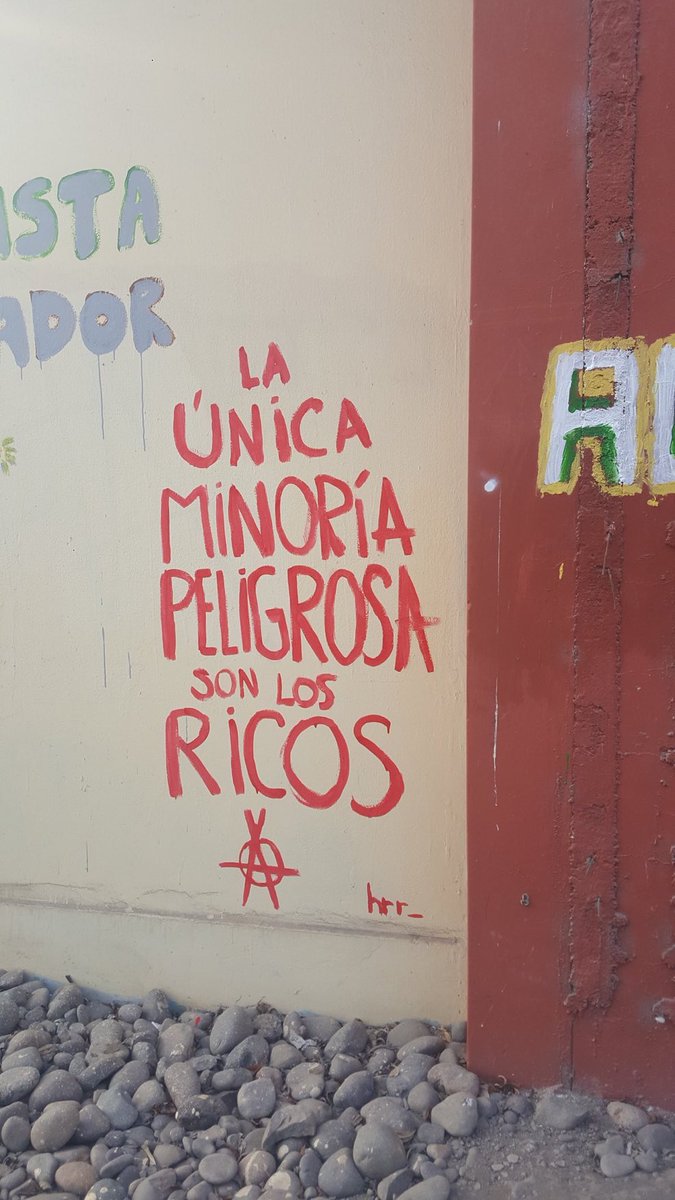 ISTA
ADOR
LA
ÚNICA
MINORÍA
PELIGROSA
SON LOS
RICOS
hrr_